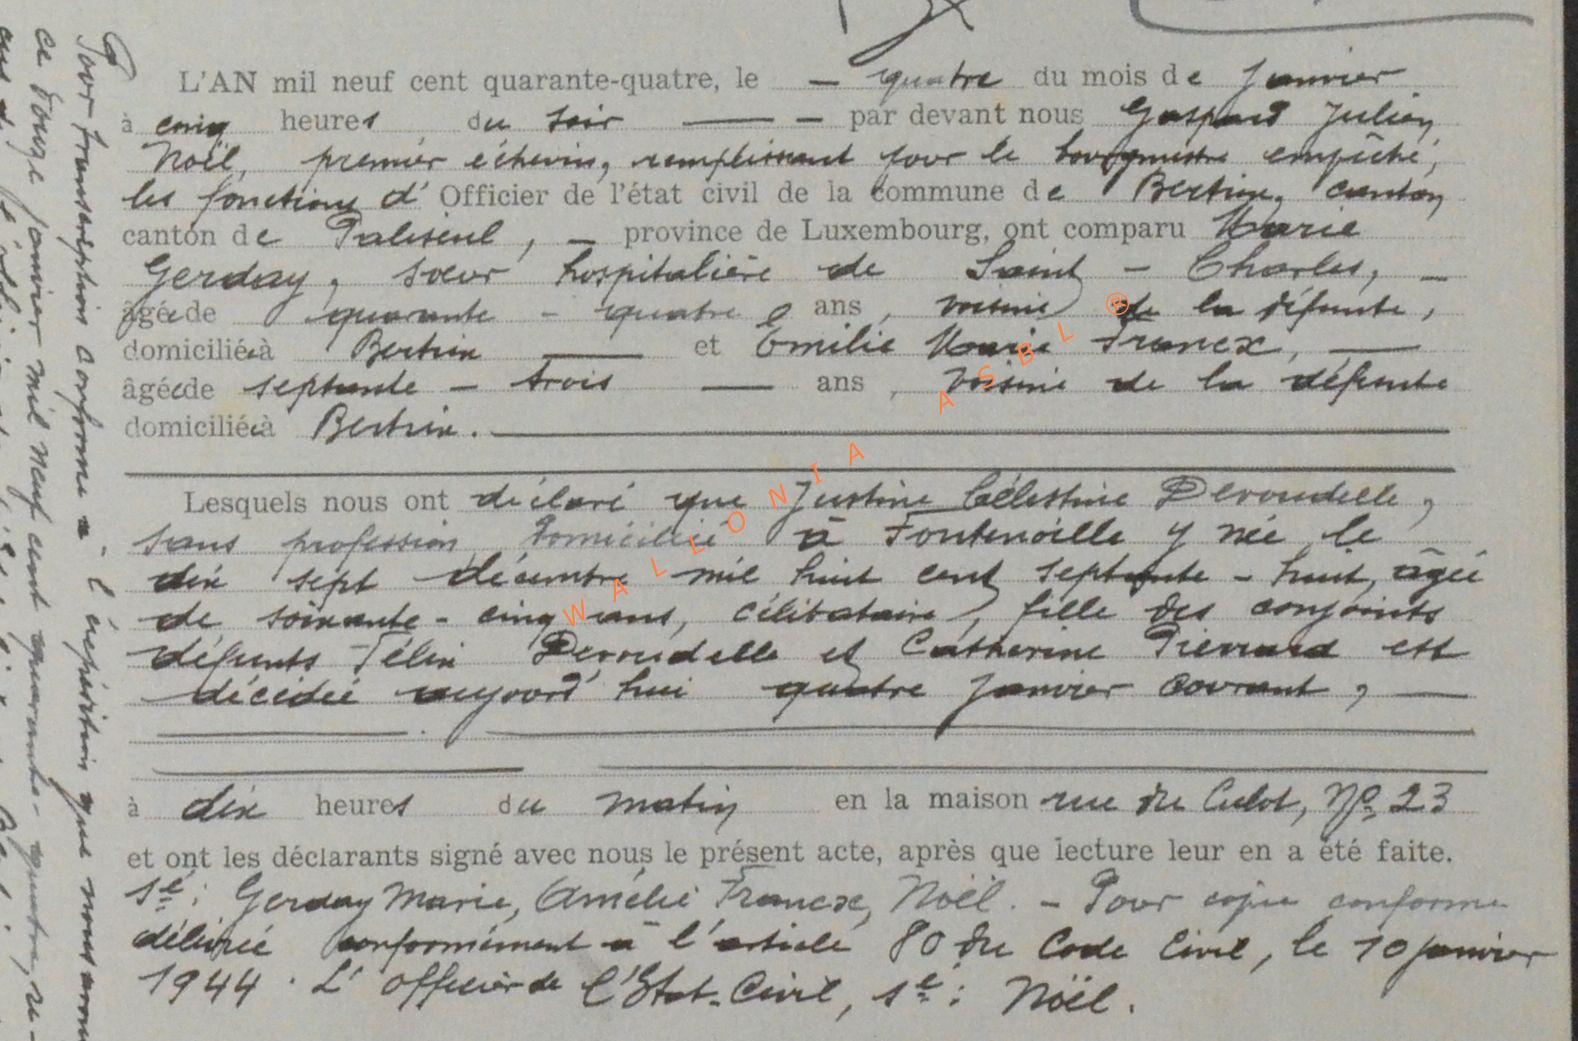 L'AN mil neuf cent quarante-quatre, le — quatre du mois de Janvier
à cinq heures du soir — — par devant nous Gaspard Julien
Noël, premier échevin, remplissant pour le bourgmestre empêché,
les fonctions d' Officier de l'état civil de la commune de Bertrix, canton
canton de Paliseul, — province de Luxembourg, ont comparu Marie
Gerday, sœur hospitalière de Saint - Charles, —
âgée de quarante - quatre ans, voisine de la défunte,
domiciliée à Bertrix — et Emilie Marie Francx, —
âgée de septante - trois — ans, voisine de la défunte
domiciliée à Bertrix.
Lesquels nous ont déclaré que Justine Célestine Devoudelle,
sans profession, domicilié à Fontenoille y née le
dix sept décembre mil huit cent septante - huit, âgée
de soixante - cinq ans, célibataire, fille des conjoints
défunts Félix Devoudelle et Catherine Pierrard est
décédée aujourd'hui quatre janvier courant, —
à dix heures du matin en la maison rue du Culot, N° 23
et ont les déclarants signé avec nous le présent acte, après que lecture leur en a été faite.
sé: Gerday Marie, Amélie Francx, Noël. - Pour copie conforme
délivrée conformément à l'article 80 du Code Civil, le 10 janvier
1944. L'officier de l'Etat-Civil, sé: Noël.
Pour transcription conforme à l'expédition que nous avons
ce douze janvier mil neuf cent quarante-quatre, re-
WALLONIA ASBL ®